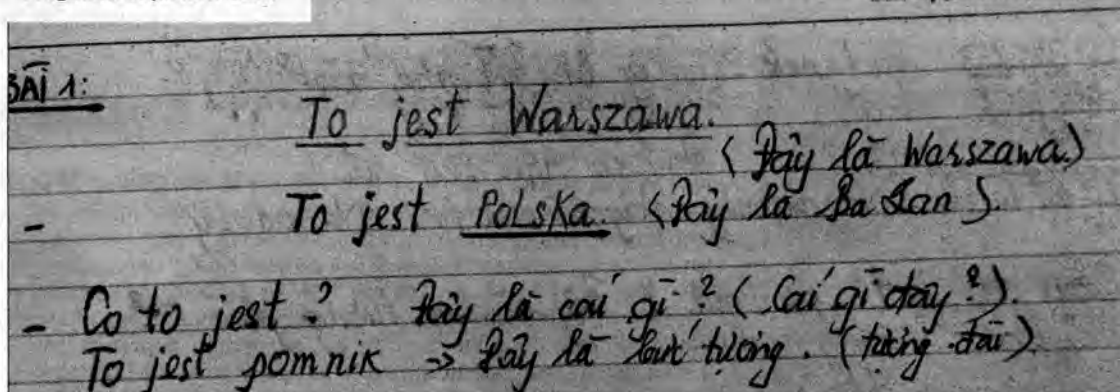 BÀI 1:
To jest Warszawa.
(Đây là Warszawa.)
- To jest Polska. (Đây là Ba Lan).
- Co to jest? Đây là cái gì? (Cái gì đây?).
To jest pomnik => Đây là bức tượng. (tượng đài)